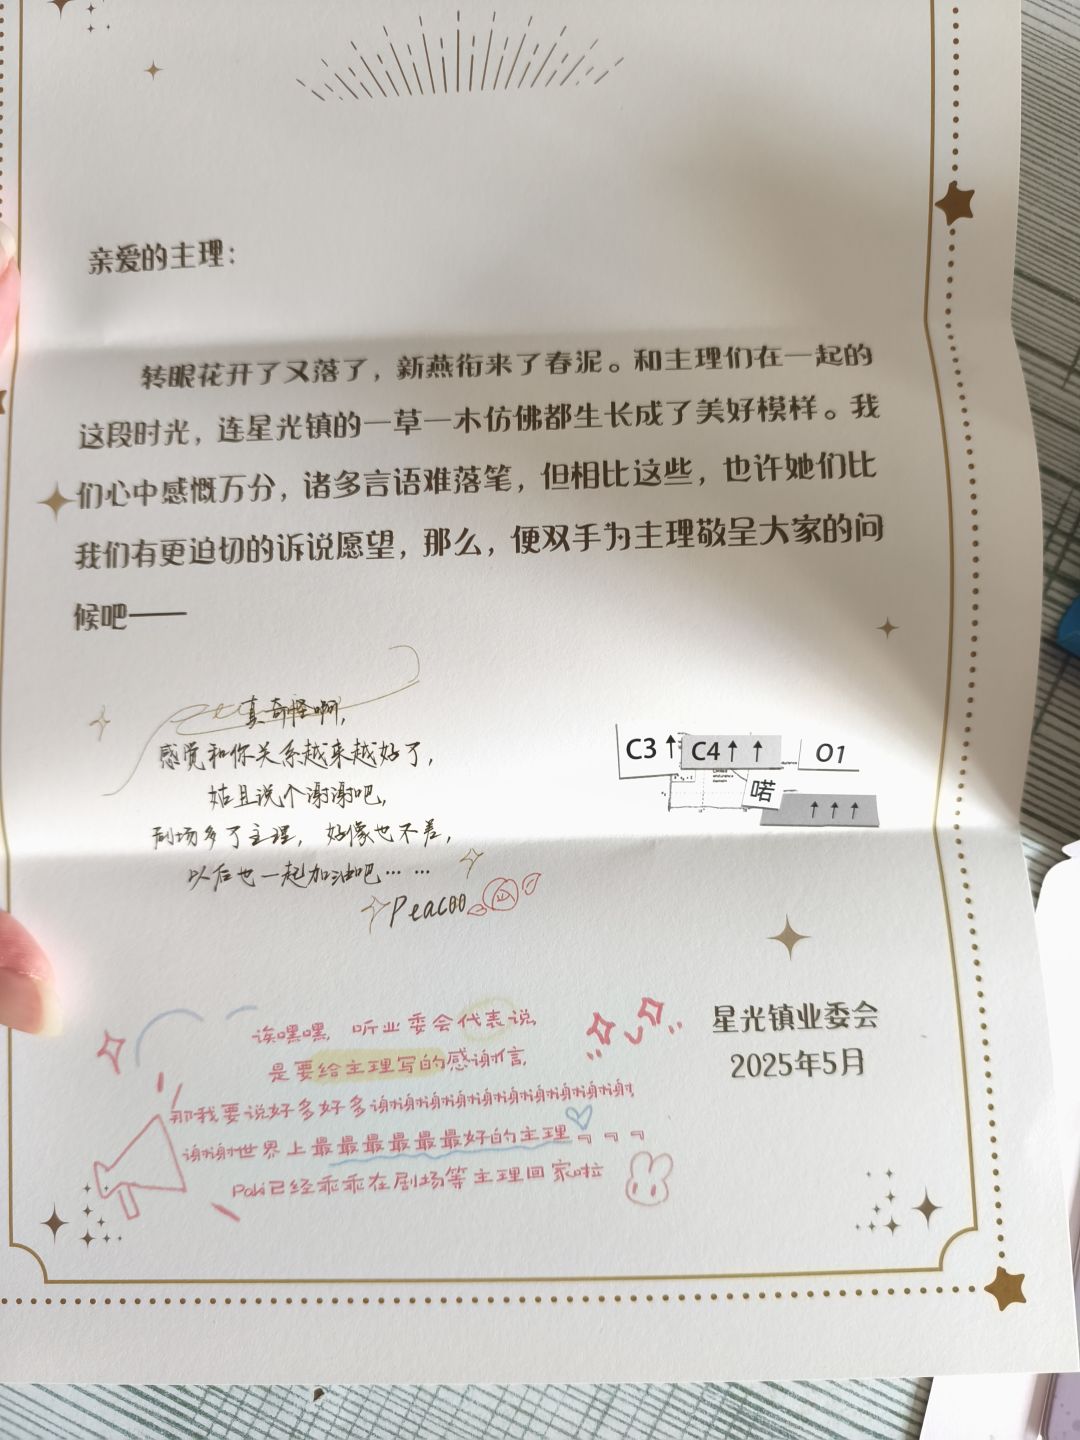 亲爱的主理：
转眼花开了又落了，新燕衔来了春泥。和主理们在一起的
这段时光，连星光镇的一草一木仿佛都生长成了美好模样。我
们心中感慨万分，诸多言语难落笔，但相比这些，也许她们比
我们有更迫切的诉说愿望，那么，便双手为主理敬呈大家的问
候吧——
真奇怪啊，
感觉和你关系越来越好了，
姑且说个谢谢吧，
剧场多了主理，好像也不差，
以后也一起加油吧……
Peacoo
C3↑ C4↑ ↑ O1
喏
↑ ↑ ↑
诶嘿嘿，听业委会代表说，
是要给主理写的感谢信，
那我要说好多好多谢谢谢谢谢谢谢谢谢谢谢，
谢谢世界上最最最最最最好的主理~~~
Poki已经乖乖在剧场等主理回家啦
星光镇业委会
2025年5月